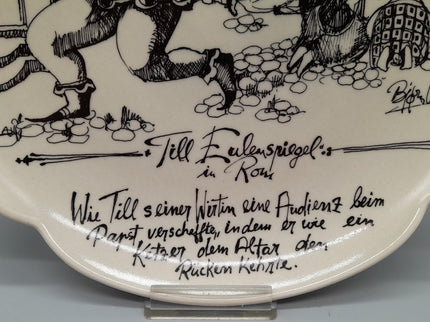 Till Eulenspiegel
in Rom
Wie Till seiner Wirtin eine Audienz beim
Papst verschaffte, indem er wie ein
Ketzer dem Altar den
Rücken kehrte.